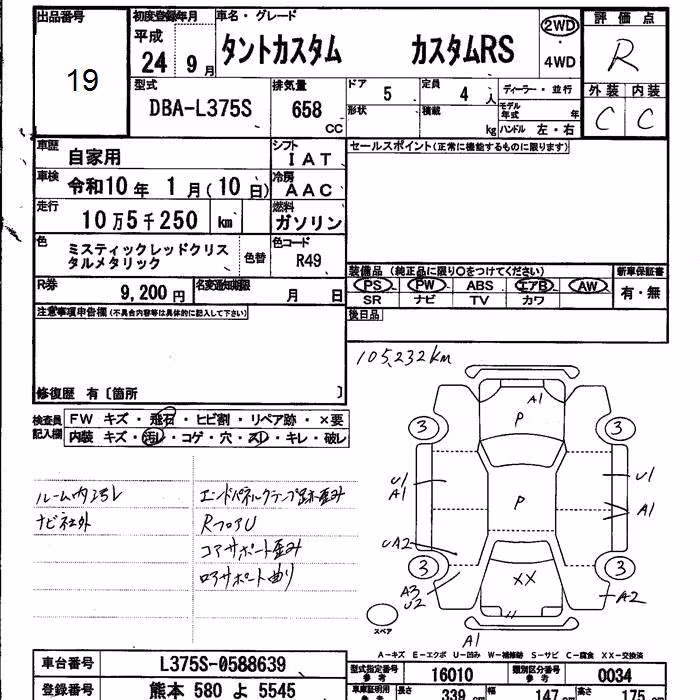 出品番号 初度登録年月 車名・グレード 2WD 評価点
平成 タントカスタム カスタムRS ・ R
19 24年 9月 4WD
型式 排気量 ドア 5 定員 4人 ディーラー・並行 外装 内装
DBA-L375S 658 cc 形状 積載 kg モデル年式 年 C C
ハンドル 左・右
車歴 自家用 シフト IAT セールスポイント(正常に機能するものに限ります)
車検 令和10年 1月(10日) 冷房 AAC
走行 10万5千250 km 燃料 ガソリン
色 ミスティックレッドクリス 色替 色コード
タルメタリック R49
装備品(純正品に限り○をつけてください) 新車保証書
R券 9,200円 名変通知期限 月 日 PS PW ABS エアB AW 有・無
SR ナビ TV カワ
注意事項申告欄(不具合内容等は具体的に記入して下さい) 後日品
105,232km
修復歴 有〔箇所 〕
検査員 FW キズ・飛石・ヒビ割・リペア跡・×要
記入欄 内装 キズ・汚レ・コゲ・穴・スレ・キレ・破レ
A1
P
3 3
U1 U1
A1 P A1
ルーム内汚レ エンドパネルクランプ跡歪み
ナビ社外 RフロアU
UA2
コアサポート歪み
ロアサポート曲り
3 XX 3
A3 A2
U2
スペア
A1
A-キズ E-エクボ U-凹み W-補修跡 S-サビ C-腐食 XX-交換済
車台番号 L375S-0588639 型式指定番号 参考 16010 類別区分番号 参考 0034
登録番号 熊本 580 よ 5545 車庫証明用 参考 長さ 339 cm 幅 147 cm 高さ 175 cm